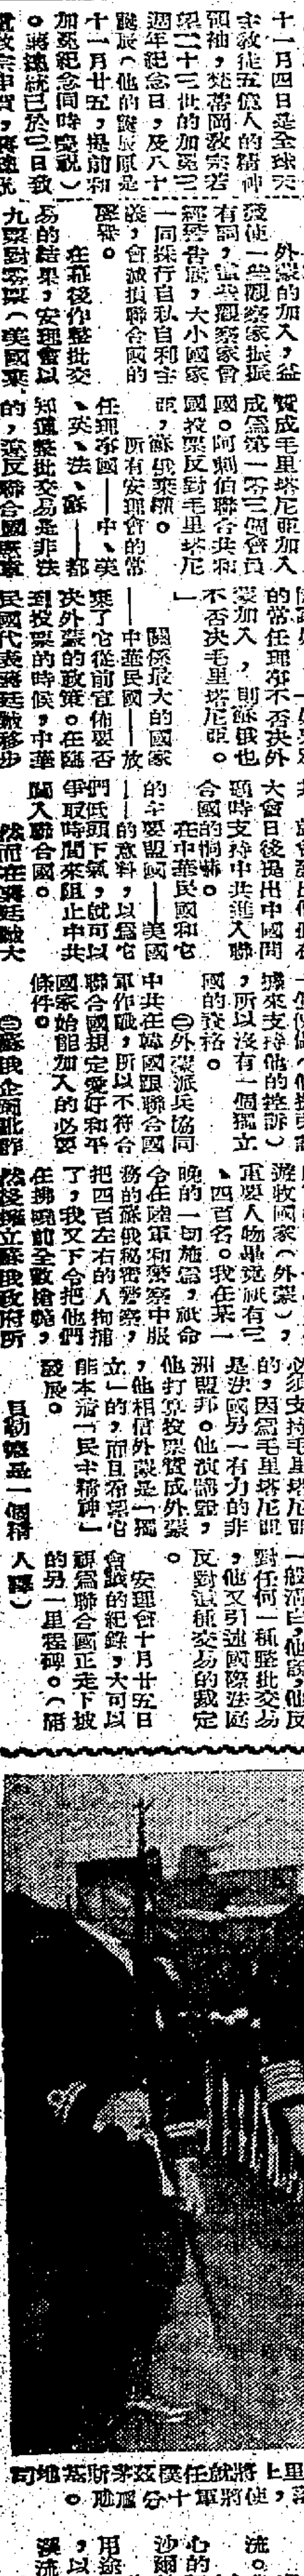 十一月四日是全球天
主教徒五億人的精神
領袖,梵蒂岡教宗若
望二十三世的加冕三
週年紀念日,及八十
誕辰(他的誕辰原是
十一月廿五,提前和
加冕紀念同時慶祝)
。蔣總統已於三日致
外蒙的加入,益
發使一些觀察家振振
有詞,這些觀察家曾
經警告說,大小國家
一同採行自私自利主
義,會減損聯合國的
在幕後作整批交
易的結果,安理會以
九票對零票(美國棄
贊成毛里塔尼亞加入
成為第一零三個會員
國。阿剌伯聯合共和
國投票反對毛里塔尼
亞,蘇俄棄權。
所有安理會的常
任理事國——中、美
、英、法、蘇——都
知道整批交易是非法
的,違反聯合國憲章
的常任理事不否決外
蒙加入,則蘇俄也
不否決毛里塔尼亞。
」
關係最大的國家
——中華民國——放
棄了它從前宣佈要否
決外蒙的政策。在臨
到投票的時候,中華
民國代表蔣廷黻移步
大會日後提出中國問
題時支持中共進入聯
合國的恫嚇。
在中華民國和它
的主要盟國——美國
——的意料,以為它
們低頭下氣,就可以
爭取時間來阻止中共
闖入聯合國。
然而在蔣廷黻大
據來支持他的控訴)
,所以沒有一個獨立
國的資格。
㊁外蒙派兵協同
中共在韓國跟聯合國
軍作戰,所以不符合
聯合國規定愛好和平
國家始能加入的必要
條件。
㊂蘇俄企圖批評
遊牧國家(外蒙),
重要人物畢竟祇有三
、四百名。我在某一
晚的一切施為,祇命
令在陸軍和警察中服
務的蘇俄秘密警察,
把四百左右的人拘捕
了,我又下令把他們
在拂曉前全數槍斃,
然後擁立蘇俄政府所
必須支持毛里塔尼亞
的,因為毛里塔尼亞
是法國另一有力的非
洲盟邦。他演講說,
他打算投票贊成外蒙
,他相信外蒙是「獨
立」的,而且希望它
能本着「民主精神」
發展。
是一個精
他說,他反
對任何一種整批交易
,他又引述國際法庭
反對這種交易的裁定
。
安理會十月廿五日
會議的紀錄,大可以
視為聯合國正走下坡
的另一里程碑。(
人譯)
流。
心的
沙爾
用途
,以